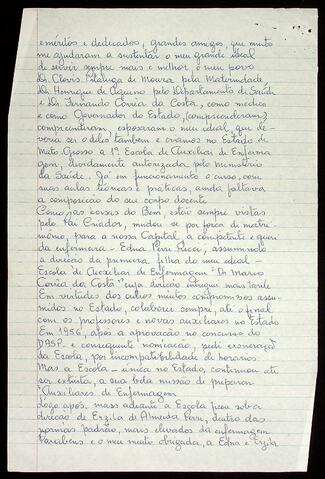 eméritos e dedicados, grandes amigos que muito
me ajudaram a sustentar o meu grande ideal
de servir sempre mais e melhor o meu povo
Dr. Clovis Pitaluga de Moura pela Maternidade
Dr. Henrique de Aquino pelo Departamento de Saúde
e Dr. Fernando Corrêa da Costa, como médico
e como Governador do Estado, (compreenderam)
compreenderam, esposaram o meu ideal, que de-
veria ser o deles tambem e criamos no Estado de
Mato Grosso a 1ª Escola de Auxiliar de Enferma
gem, devidamente autorizada, pelo Ministério
da Saúde. Já em funcionamento o curso, com
suas aulas teóricas e práticas, ainda faltava
a composição do seu corpo docente
Como as coisas do Bem, estão sempre vistas
pelo Pai Criador, mudou-se por força de matri-
mônio, para a nossa Capital a competente e
da enfermeira - Edna Perri Ricci, assumindo
a direção da primeira filha do meu ideal -
Escola de Auxiliar de Enfermagem "Dr Mario
Corrêa da Costa" cuja direção entreguei mais tarde
Em virtudes dos outros muitos compromissos assu-
midos no Estado, colaborei sempre, até o final
com os professores e novas auxiliares no Estado
Em 1956, após a aprovação no concurso do
DASP- e consequente nomeação, pedi exoneração
da Escola, por incompatibilidade de horarios
Mas a Escola - única no Estado, continuou até
ser extinta, a sua bela missão de preparar
Auxiliares de Enfermagem
Logo após, mais adiante a Escola ficou sob a
direcão de Erzila de Almeida Perri, dentro das
normas padrão, mais elevados da enfermagem
Parabens e o meu muito obrigada, a Edna e Erzila.